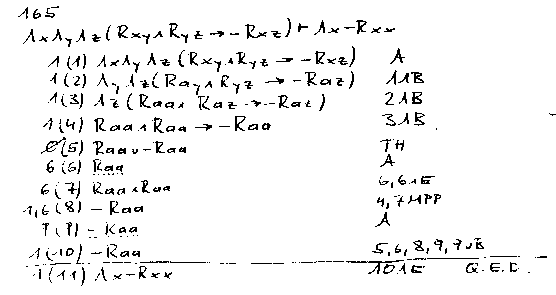 165
ΛxΛyΛz(Rxy∧Ryz→-Rxz)⊢Λx-Rxx
1 (1) ΛxΛyΛz(Rxy∧Ryz→-Rxz) A
1 (2) ΛyΛz(Ray∧Ryz→-Raz) 1ΛB
1 (3) Λz(Raa∧Raz→-Raz) 2ΛB
1 (4) Raa∧Raa→-Raa 3ΛB
∅ (5) Raa∨-Raa TH
6 (6) Raa A
6 (7) Raa∧Raa 6,6∧E
1,6 (8) -Raa 4,7MPP
9 (9) -Raa A
1 (10) -Raa 5,6,8,9,9∨B
1 (11) Λx-Rxx 10ΛE Q.E.D.